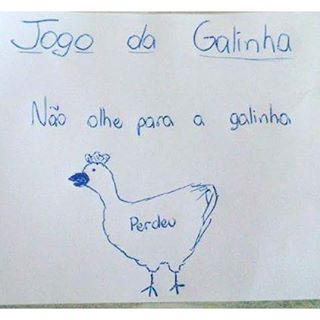 Jogo da Galinha
Não olhe para a galinha
Perdeu